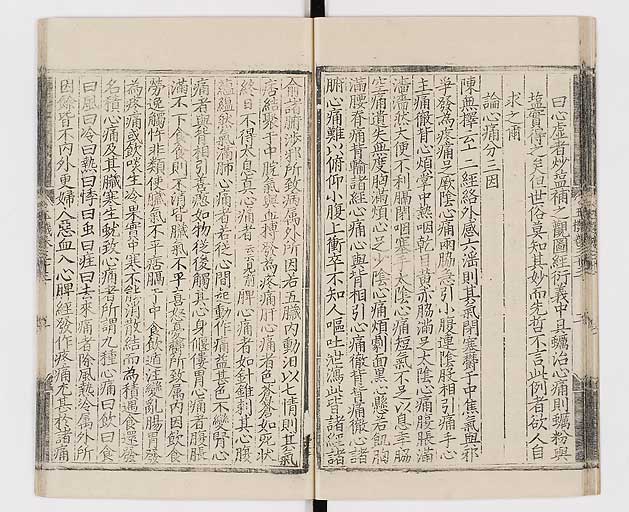 曰心虛者炒鹽補之觀圖經衍義中其蠣治心痛則蠣粉與
鹽實得之矣但世俗莫知其妙而先哲不言此例者欲人自
求之爾
論心痛分三因
陳無擇云十二經絡外感六淫則其氣閉塞鬱于中焦氣與邪
爭發為疼痛足厥陰心痛兩脇急引小腹連陰股相引痛手心
主痛徹背心煩掌中熱咽乾目黃赤脇滿足太陰心痛腹脹滿
濇濇然大便不利膈閉咽塞手太陰心痛短氣不足以息季脇
空痛遺失無度胸滿煩心足少陰心痛煩劇面黑心懸若飢胸
滿腰脊痛背腧諸經心痛心與背相引心痛徹背背痛徹心諸
腑心痛難以俯仰小腹上衝卒不知人嘔吐泄瀉此皆諸經諸
俞諸腑涉邪所致病屬外所因若五臟內動汨以七情則其氣
痞結聚于中脘氣與血搏發為疼痛肝心痛者色蒼蒼如死狀
終日不得太息真心痛者 脾心痛者如針錐刺其心腹
蘊蘊然氣滿肺心痛者若從心間起動作痛益甚色不變腎心
痛者與背相引善瘛如物從後觸其心身傴僂胃心痛者腹脹
滿不下食食則不消皆臟氣不平喜怒憂鬱所致屬內因飲食
勞逸觸忤非類使臟氣不平痞膈于中食飲遁注變亂腸胃發
為疼痛或飲啖生冷果實中寒不能消散結而為積遇食還發
名積心痛及其臟寒生蚘致心痛者所謂九種心痛曰飲曰食
曰風曰冷曰熱曰悸曰虫曰疰曰去來痛者除風熱冷屬外所
因餘皆不內外更婦人惡血入心脾經發作疼痛尤甚於諸痛